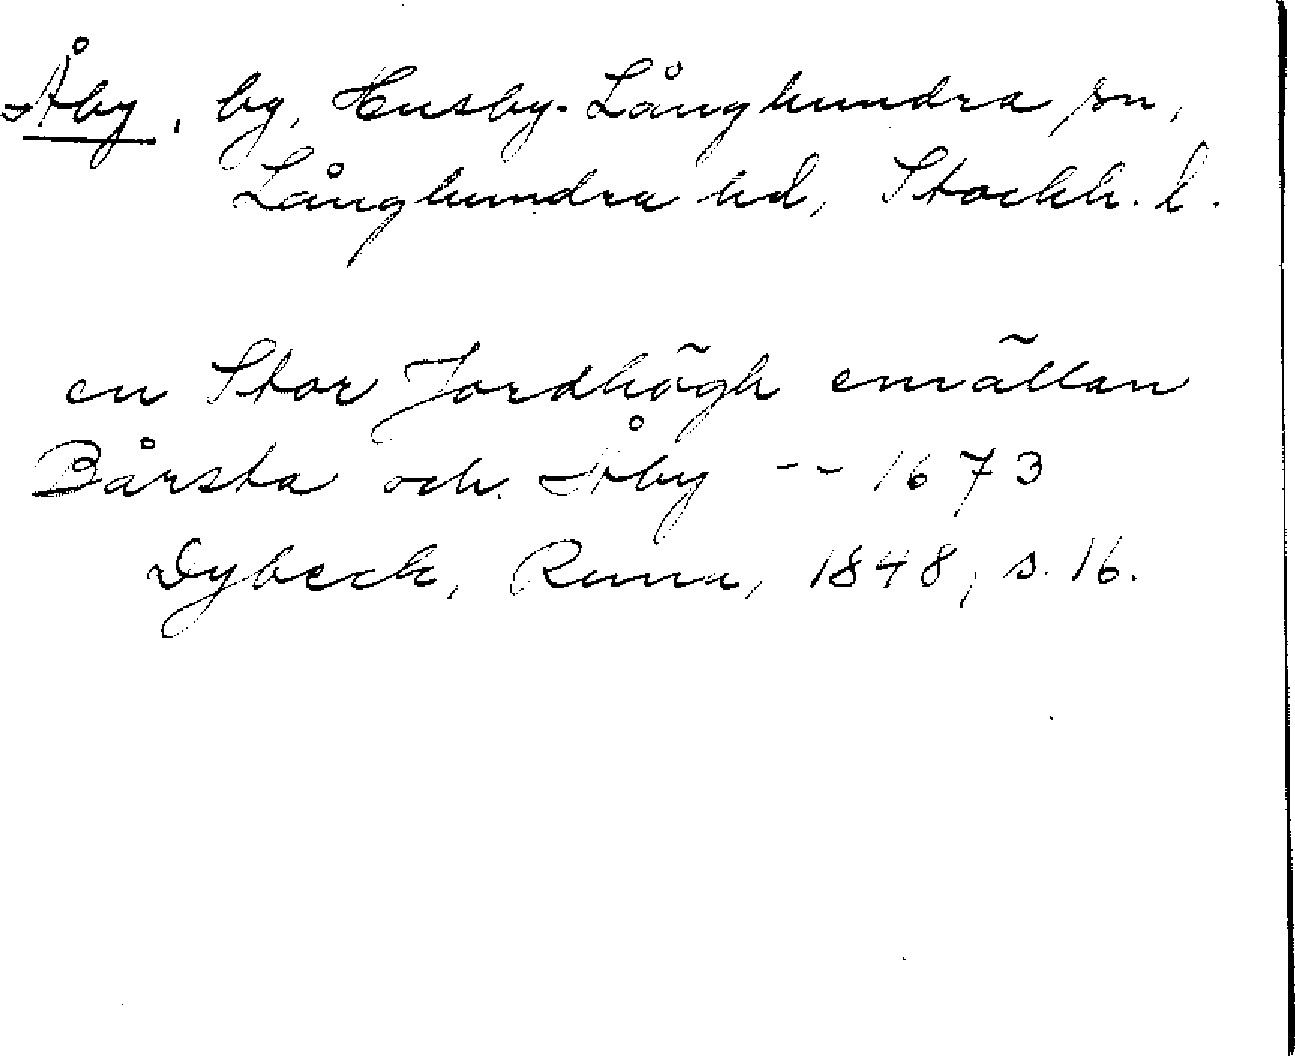 Åby, by, Husby-Långhundra sn,
Långhundra hd, Stockh. l.
en Stor Jordhõgh emãllan
Bårsta och Åby -- 1673
Dybeck, Runa, 1848, s. 16.